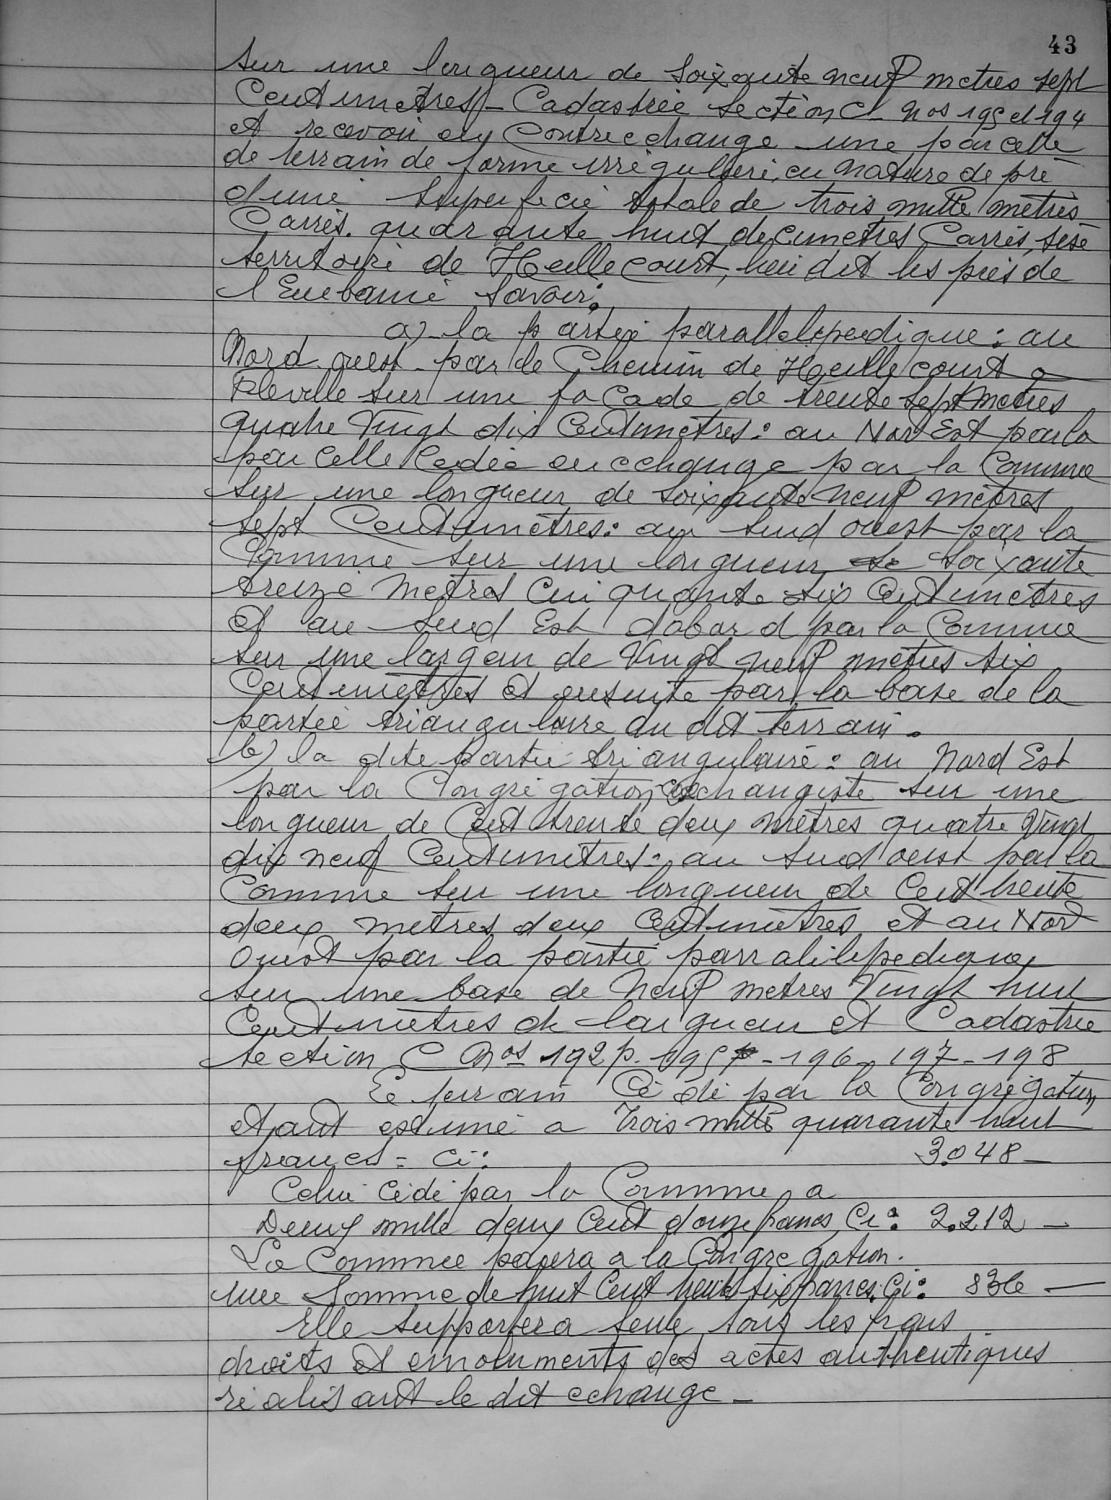 43
sur une longueur de soixante neuf metres sept
Centimetres - Cadastrée Section C Nos 195 et 194
et recevoir en Contrechange une parcelle
de terrain de forme irrégulière, en nature de pré
d'une superficie totale de trois mille mètres
Carrés. quarante huit decimetres Carrés, sise
territoire de Heillecourt, lieu dit les prés de
l'Embanie savoir:
a) la partie parallelepedique: au
Nord ouest - par le Chemin de Heillecourt a
Fléville sur une facade de trente sept metres
quatre Vingt dix Centimètres: au Nord Est par la
parcelle Cedée en echange par la Commune
sur une longueur de soixante neuf mètres
sept Centimètres: au sud ouest par la
Commune sur une longueur de soixante
treize metres Cinquante six Centimetres
et au sud Est d'abord par la Commune
sur une largeur de Vingt neuf metres six
Centimètres et ensuite par la base de la
partie triangulaire du dit terrain.
b) la dite partie triangulaire: au Nord Est
par la Congrégation echangiste sur une
longueur de Cent trente deux mètres quatre Vingt
dix neuf Centimetres: au sud ouest par la
Commune sur une longueur de Cent trente
deux metres deux Centimètres et au Nord
Ouest par la partie parralilepedique
sur une base de Neuf metres Vingt huit
Centimètres de largueur et Cadastrée
section C Nos 192 p. 195 p - 196 - 197 - 198
Le terrain Cédé par la Congrégation
etant estimé a Trois mille quarante huit
francs = Ci: 3.048 -
Celui Cédé par la Commune a
Deux mille deux Cent douze francs Ci: 2.212 -
La Commune paiera a la Congregation.
une Somme de huit Cent trente six francs. Ci: 836 -
Elle supportera seule tous les frais
droits et emoluments des actes authentiques
réalisant le dit echange -